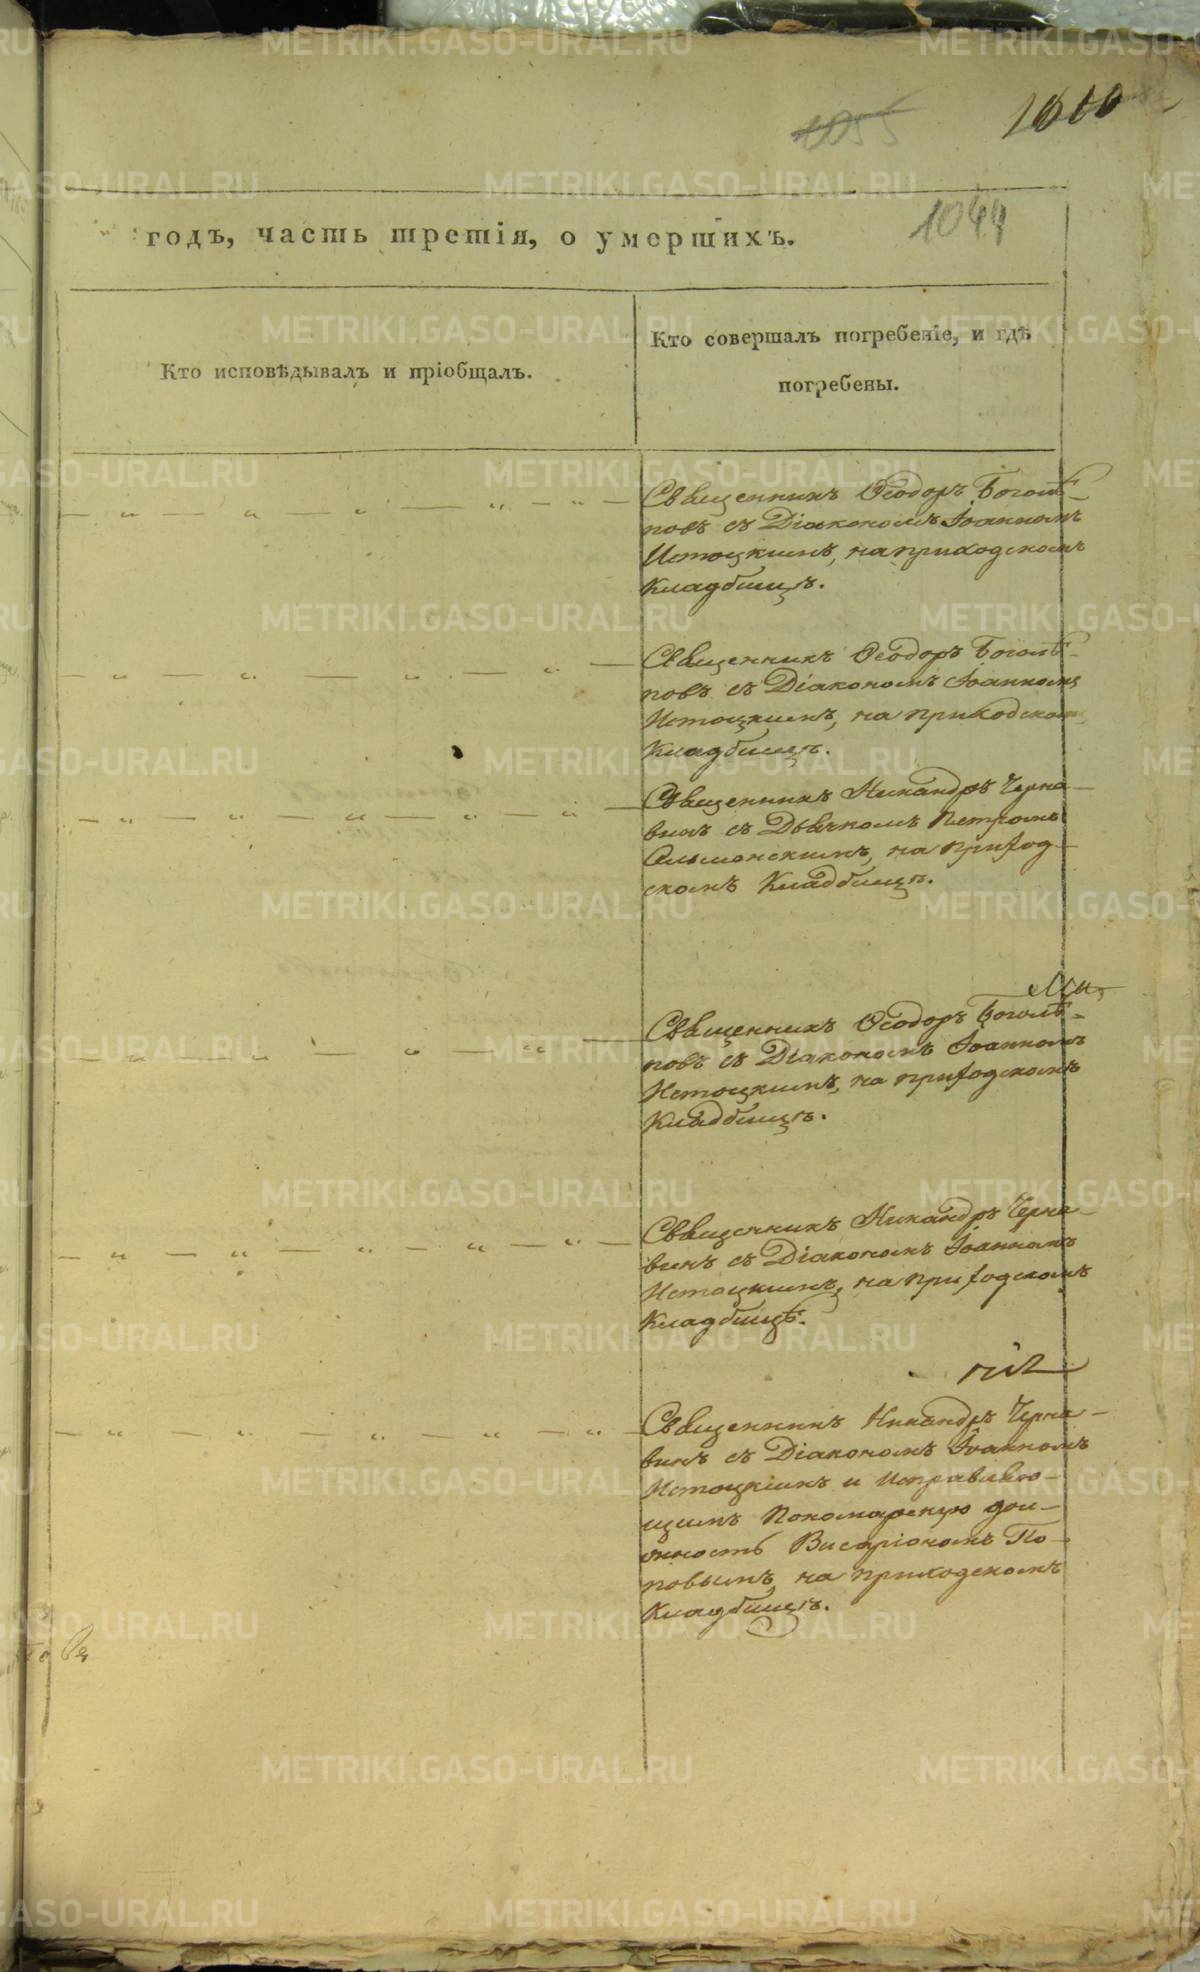 1055
1000
1044
годъ, часть третія, о умершихъ.
Кто исповѣдывалъ и пріобщалъ.
Кто совершалъ погребеніе, и гдѣ
погребены.
Священникъ Ѳеодоръ Боголѣ-
повъ съ Діакономъ Іоанномъ
Истоцкимъ, на приходскомъ
Кладбищѣ.
Священникъ Ѳеодоръ Боголѣ-
повъ съ Діакономъ Іоанномъ
Истоцкимъ, на приходскомъ
Кладбищѣ.
Священникъ Никандръ Черна-
винъ съ Дьячкомъ Петромъ
на приход-
скомъ Кладбищѣ.
Священникъ Ѳеодоръ Боголѣ-
повъ съ Діакономъ Іоанномъ
Истоцкимъ, на приходскомъ
Кладбищѣ.
Священникъ Никандръ Черна-
винъ съ Діакономъ Іоанномъ
Истоцкимъ, на приходскомъ
Кладбищѣ.
Священникъ Никандръ Черна-
винъ съ Діакономъ Іоанномъ
Истоцкимъ и исправляю-
щимъ Пономарскую дол-
жность Висаріономъ По-
повымъ, на приходскомъ
Кладбищѣ.
METRIKI.GASO-URAL.RU